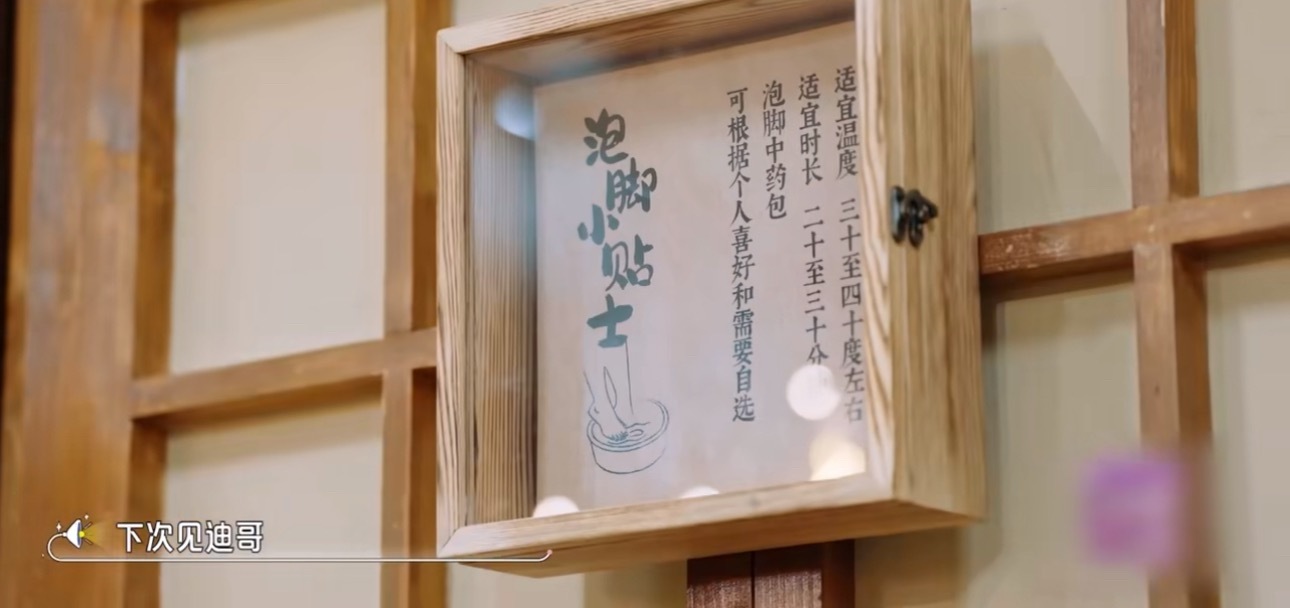 适宜温度 三十至四十度左右
适宜时长 二十至三十分
泡脚中药包
可根据个人喜好和需要自选
泡脚小贴士
下次见迪哥